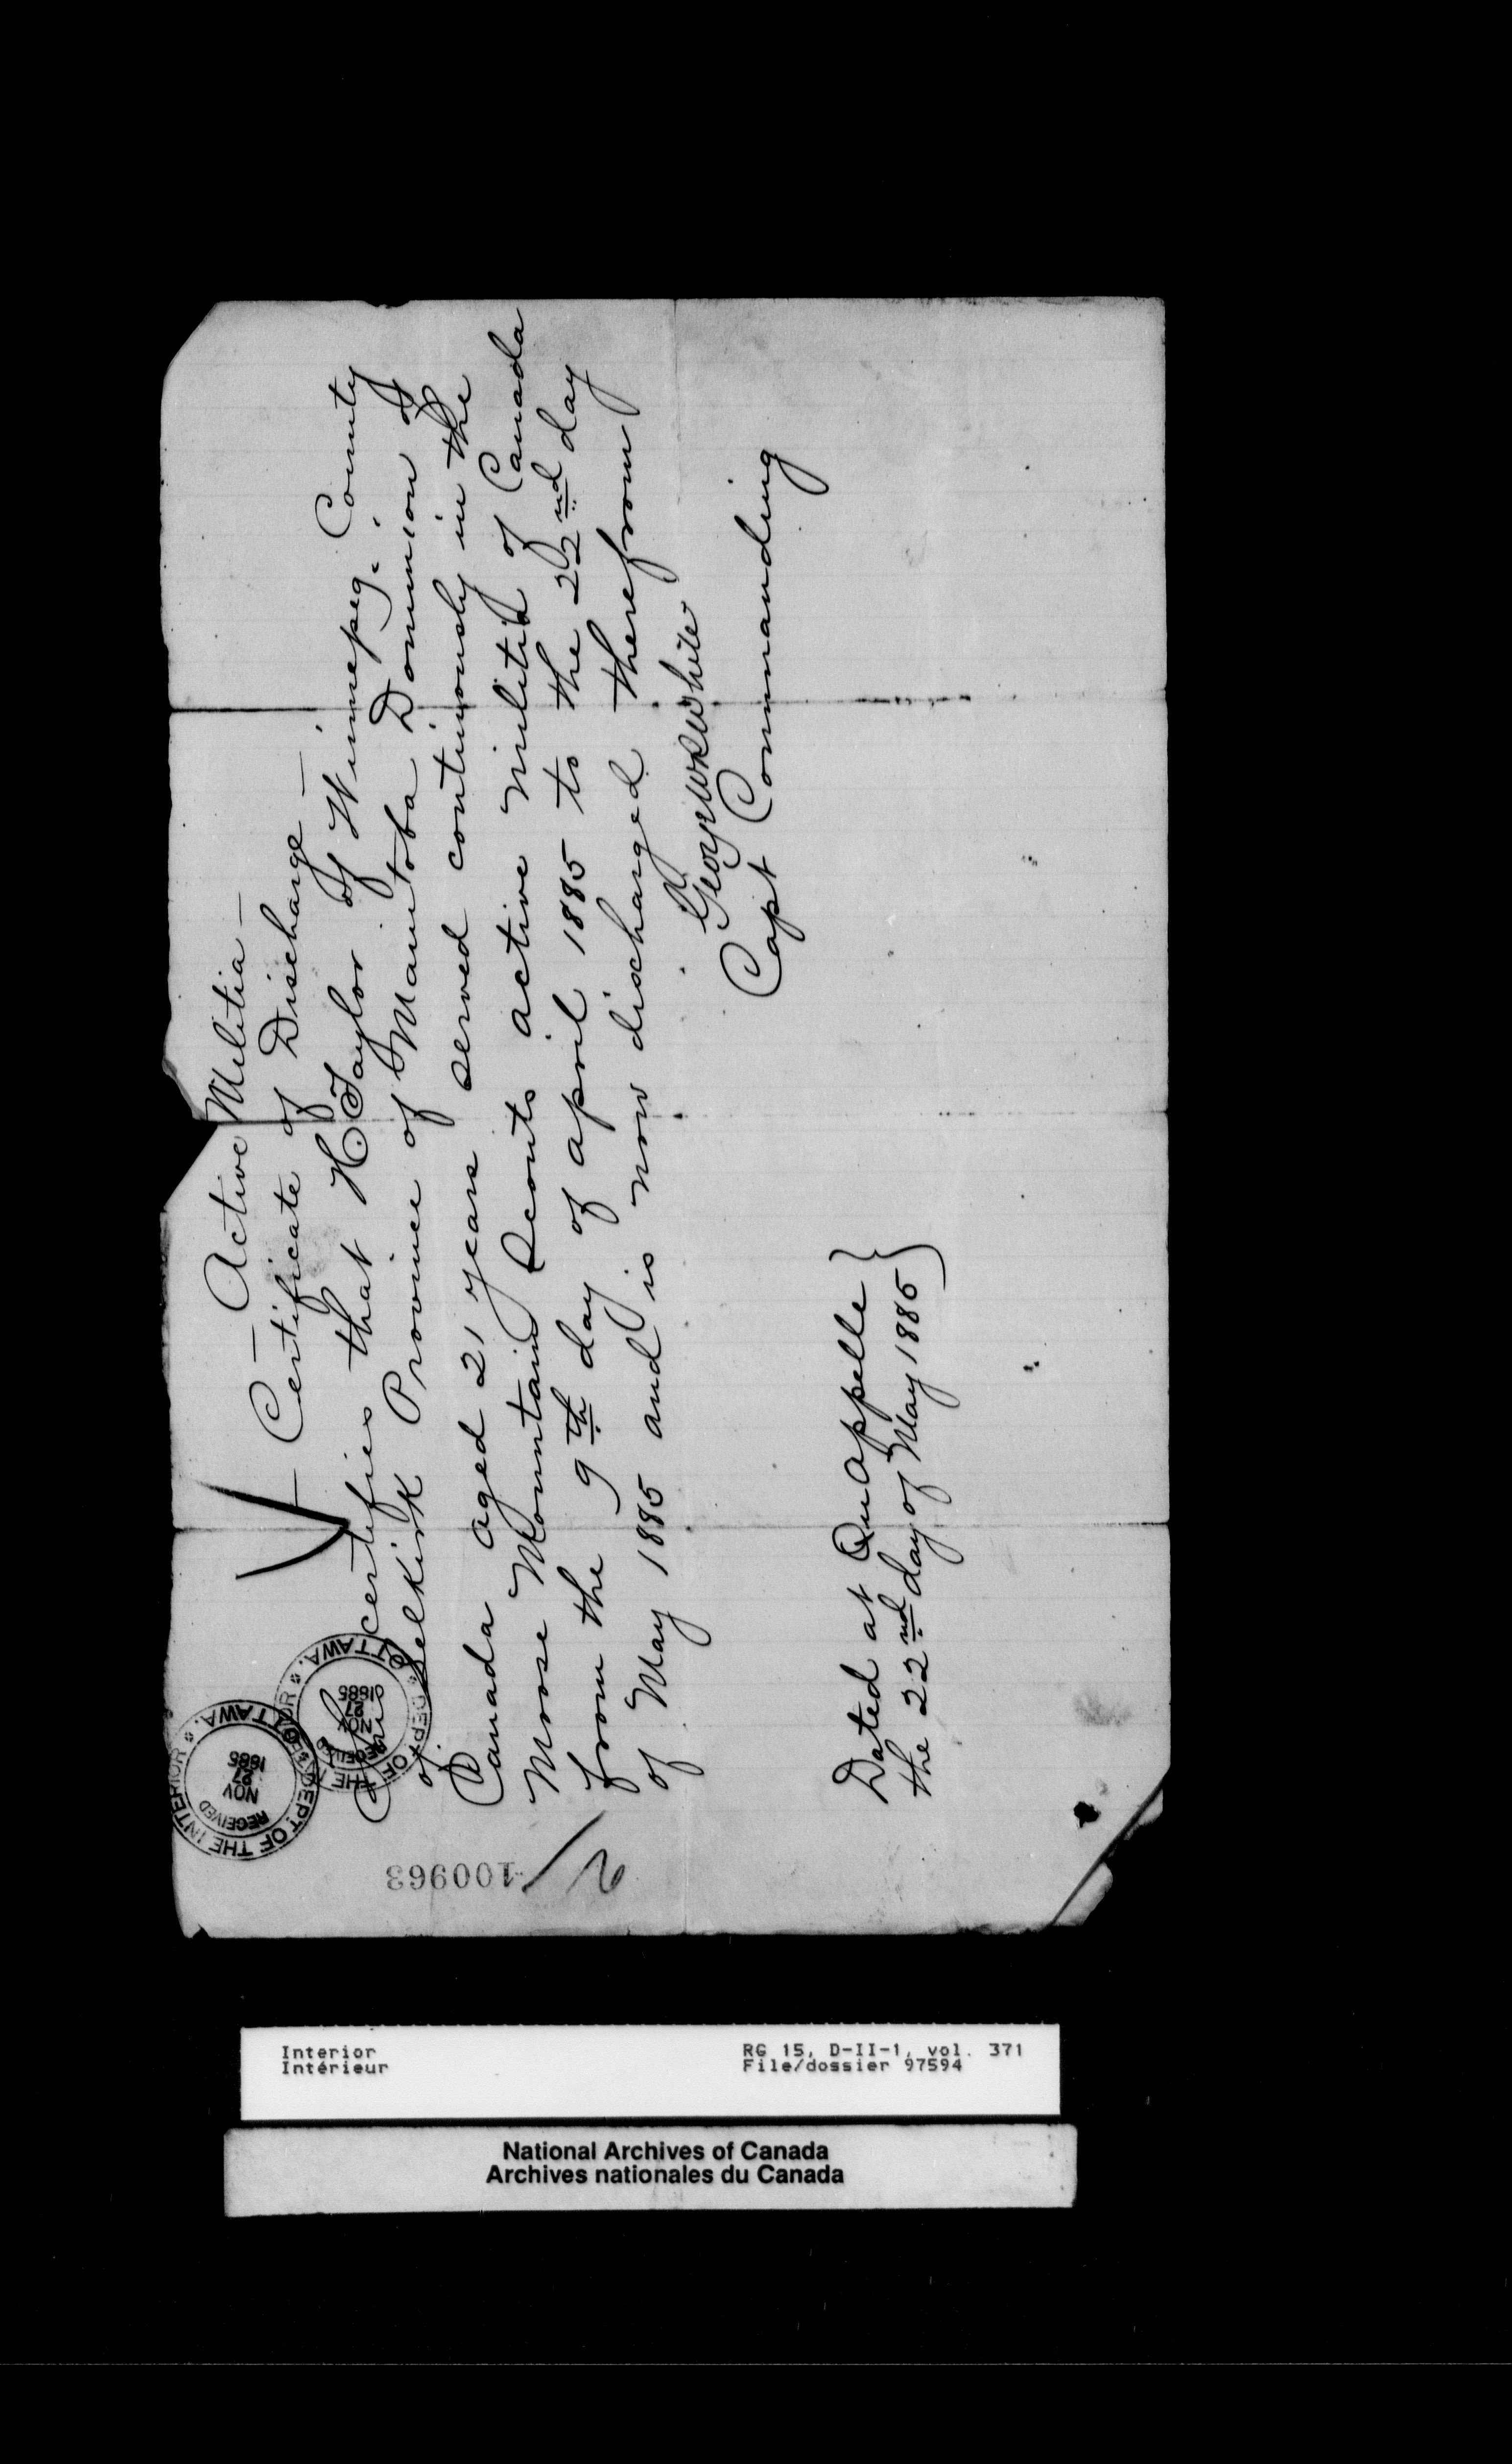 — Active Militia —
— Certificate of Discharge —
This certifies that H Taylor of Winnepeg. County
of Selkirk Province of Manitoba Dominion of
Canada aged 21 years served continuously in the
Moose Mountain Scouts active militia of Canada
from the 9th day of april 1885 to the 22nd day
of May 1885 and is now discharged therefrom
Capt Commanding
Dated at Qu appelle }
the 22nd day of May 1885 }
DEPT OF THE INTERIOR OTTAWA.
RECEIVED
NOV
27
1885
DEPT OF THE INTERIOR OTTAWA.
RECEIVED
NOV
27
1885
100963
Interior
Intérieur
RG 15, D-II-1, vol. 371
File/dossier 97594
National Archives of Canada
Archives nationales du Canada